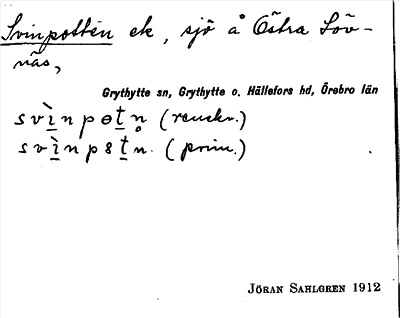 Svinpotten ek, sjö å Östra Löv-
näs,
Grythytte sn, Grythytte o. Hällefors hd, Örebro län
svìnpɵtn̥ (renskr.)
svìnp8tn. (prim.)
JÖRAN SAHLGREN 1912